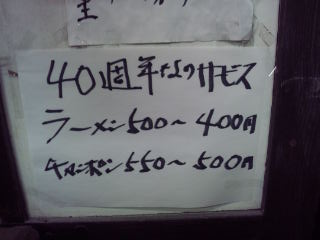 40週年なのサービス
ラーメン500～400円
チャンポン550～500円